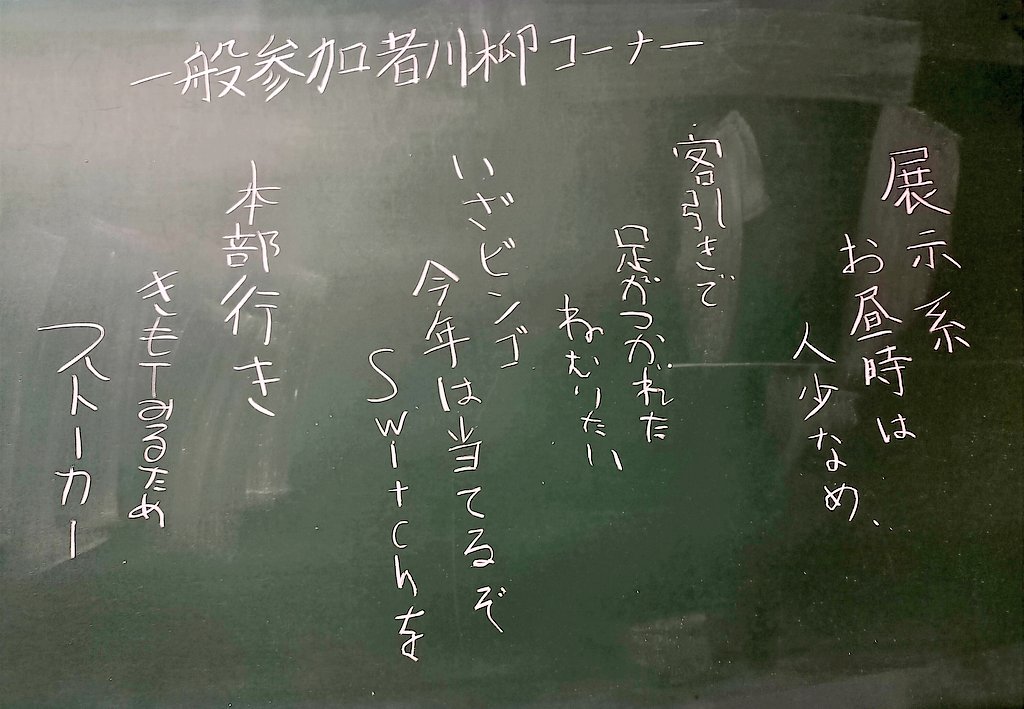 一般参加者川柳コーナー
展示系
お昼時は
人少なめ、
客引きで
足がつかれた
ねむりたい
いざビンゴ
今年は当てるぞ
Switchを
本部行き
きもTみるため
ストーカー